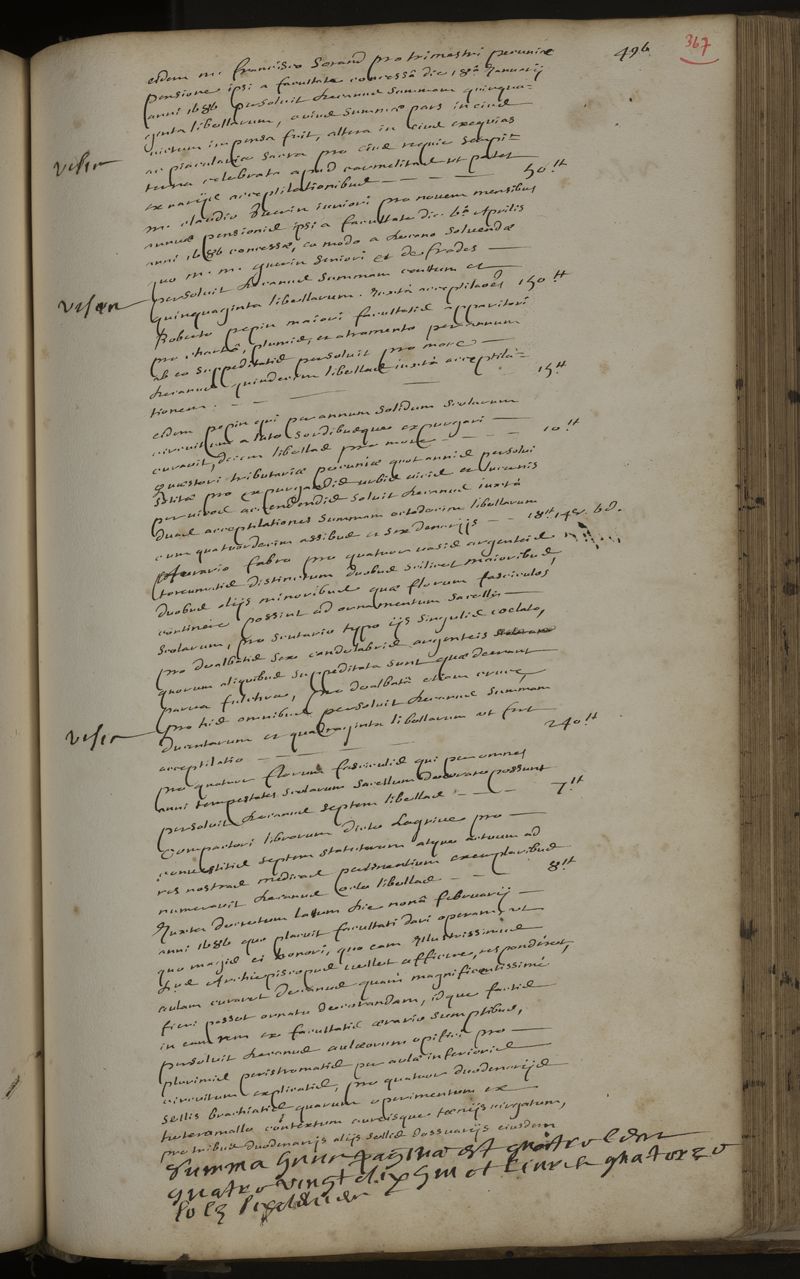 496 367
eidem m. Francisco Sorand pro trimestri pecuniæ
pensione ipsi a facultate concessâ die 18a Januarij
anni 1686 persoluit decanus summam quinqua-
ginta libellarum, cuius summæ pars in eius
victum impensa fuit, altera in eius exequias
ac piacularia sacra pro eius requie sempi-
terna celebrata apud carmelitas ut patet
ex varijs acceptilationibus — — — 50 tt
m. claudio Guerin iuniori pro novem mensibus
annuæ pensionis ipsi a facultate die 6a Aprilis
anni 1686 concessæ, eo modo a decano soluendæ
quo m. m. Guerin seniori et de frades —
persoluit decanus summam centum et
quinquaginta libellarum. Juxtà acceptilaoēs 150 tt
Roberto pepin maiori facultatis apparitori
pro chartâ, plumis, et atramento per annum
ab eo suppeditatis persoluit pro more —
decanus quindecim libellas iuxtà acceptila-
tionem. — — — — 15 tt
eidem pepin qui per annum solidum scolarum
circuitum a luto sordibusque expurgari —
curavit, decem libellas pro more — — — 10 tt
Quæstori tributariæ pecuniæ quot annis persolui
solitæ pro expurgandis urbis vicis et lucernis
per vicos accendendis soluit decanus iuxtà
duas acceptilationes summam octodecim libellarum
cum quatuordecim assibus et sex denarijs — — 18 tt 14 s. 6 d.
Aerario fabro pro quatuor vasis argenteis
toreumatis distinctum duobus scilicet maioribus,
duobus alijs minoribus quæ florum fasciculos
continere possint ad ornamentum sacelli —
scolarum, pro scutario typo ijs singulis cœlato,
pro dealbatis sex candelabris argenteis
quorum aliquibus suppeditata sunt quæ deerant
parva fulchra, pro dealbatâ etiam cruce,
pro his omnibus persoluit decanus summam
ducentarum et quadraginta libellarum ut fert
acceptilatio — — — — 240 tt
pro quatuor florum fasciculis qui per omnes
anni tempestates scolarum sacellum decorare possunt
persoluit decanus septem libellas — — — 7 tt
Compactori librorum dicto Lagrive pro —
convestitis septem statutorum atque actuum ad
res nostras medicas pertinentium exemplaribus
numeravit decanus octo libellas — — — 8 tt
Juxta decretum latum die nonâ februarij —
anni 1686 quo placuit facultati dari operam, ut
quo magis ei honori, quo eam Illustrissimus
dus Archiepiscopus vellet afficere, responderet,
aulam curaret decanus quàm magnificentissimè
fieri posset ornatu decorandam, idque factis
in eam rem ex facultatis ærario sumptibus,
persoluit decanus aulæorum opifici pro —
plurimis peristromatis per aulæ inferioris
circuitum explicatis, pro quatuor duodenarijs
sellis brachiatis quarum operimentum ex
heteromallo contextum aureisque tænijs virgatum,
pro tribus duodenarijs alijs sellis dossuarijs eiusdem
Summa huius paginæ est quatre cent
quatre vingt dix huit livres quatorze
sols six deniers